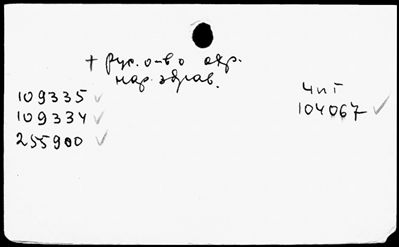 + Рус. о-во охр.
нар. здрав.
109335 ✓
109334 ✓
255900 ✓
Чит
104067 ✓